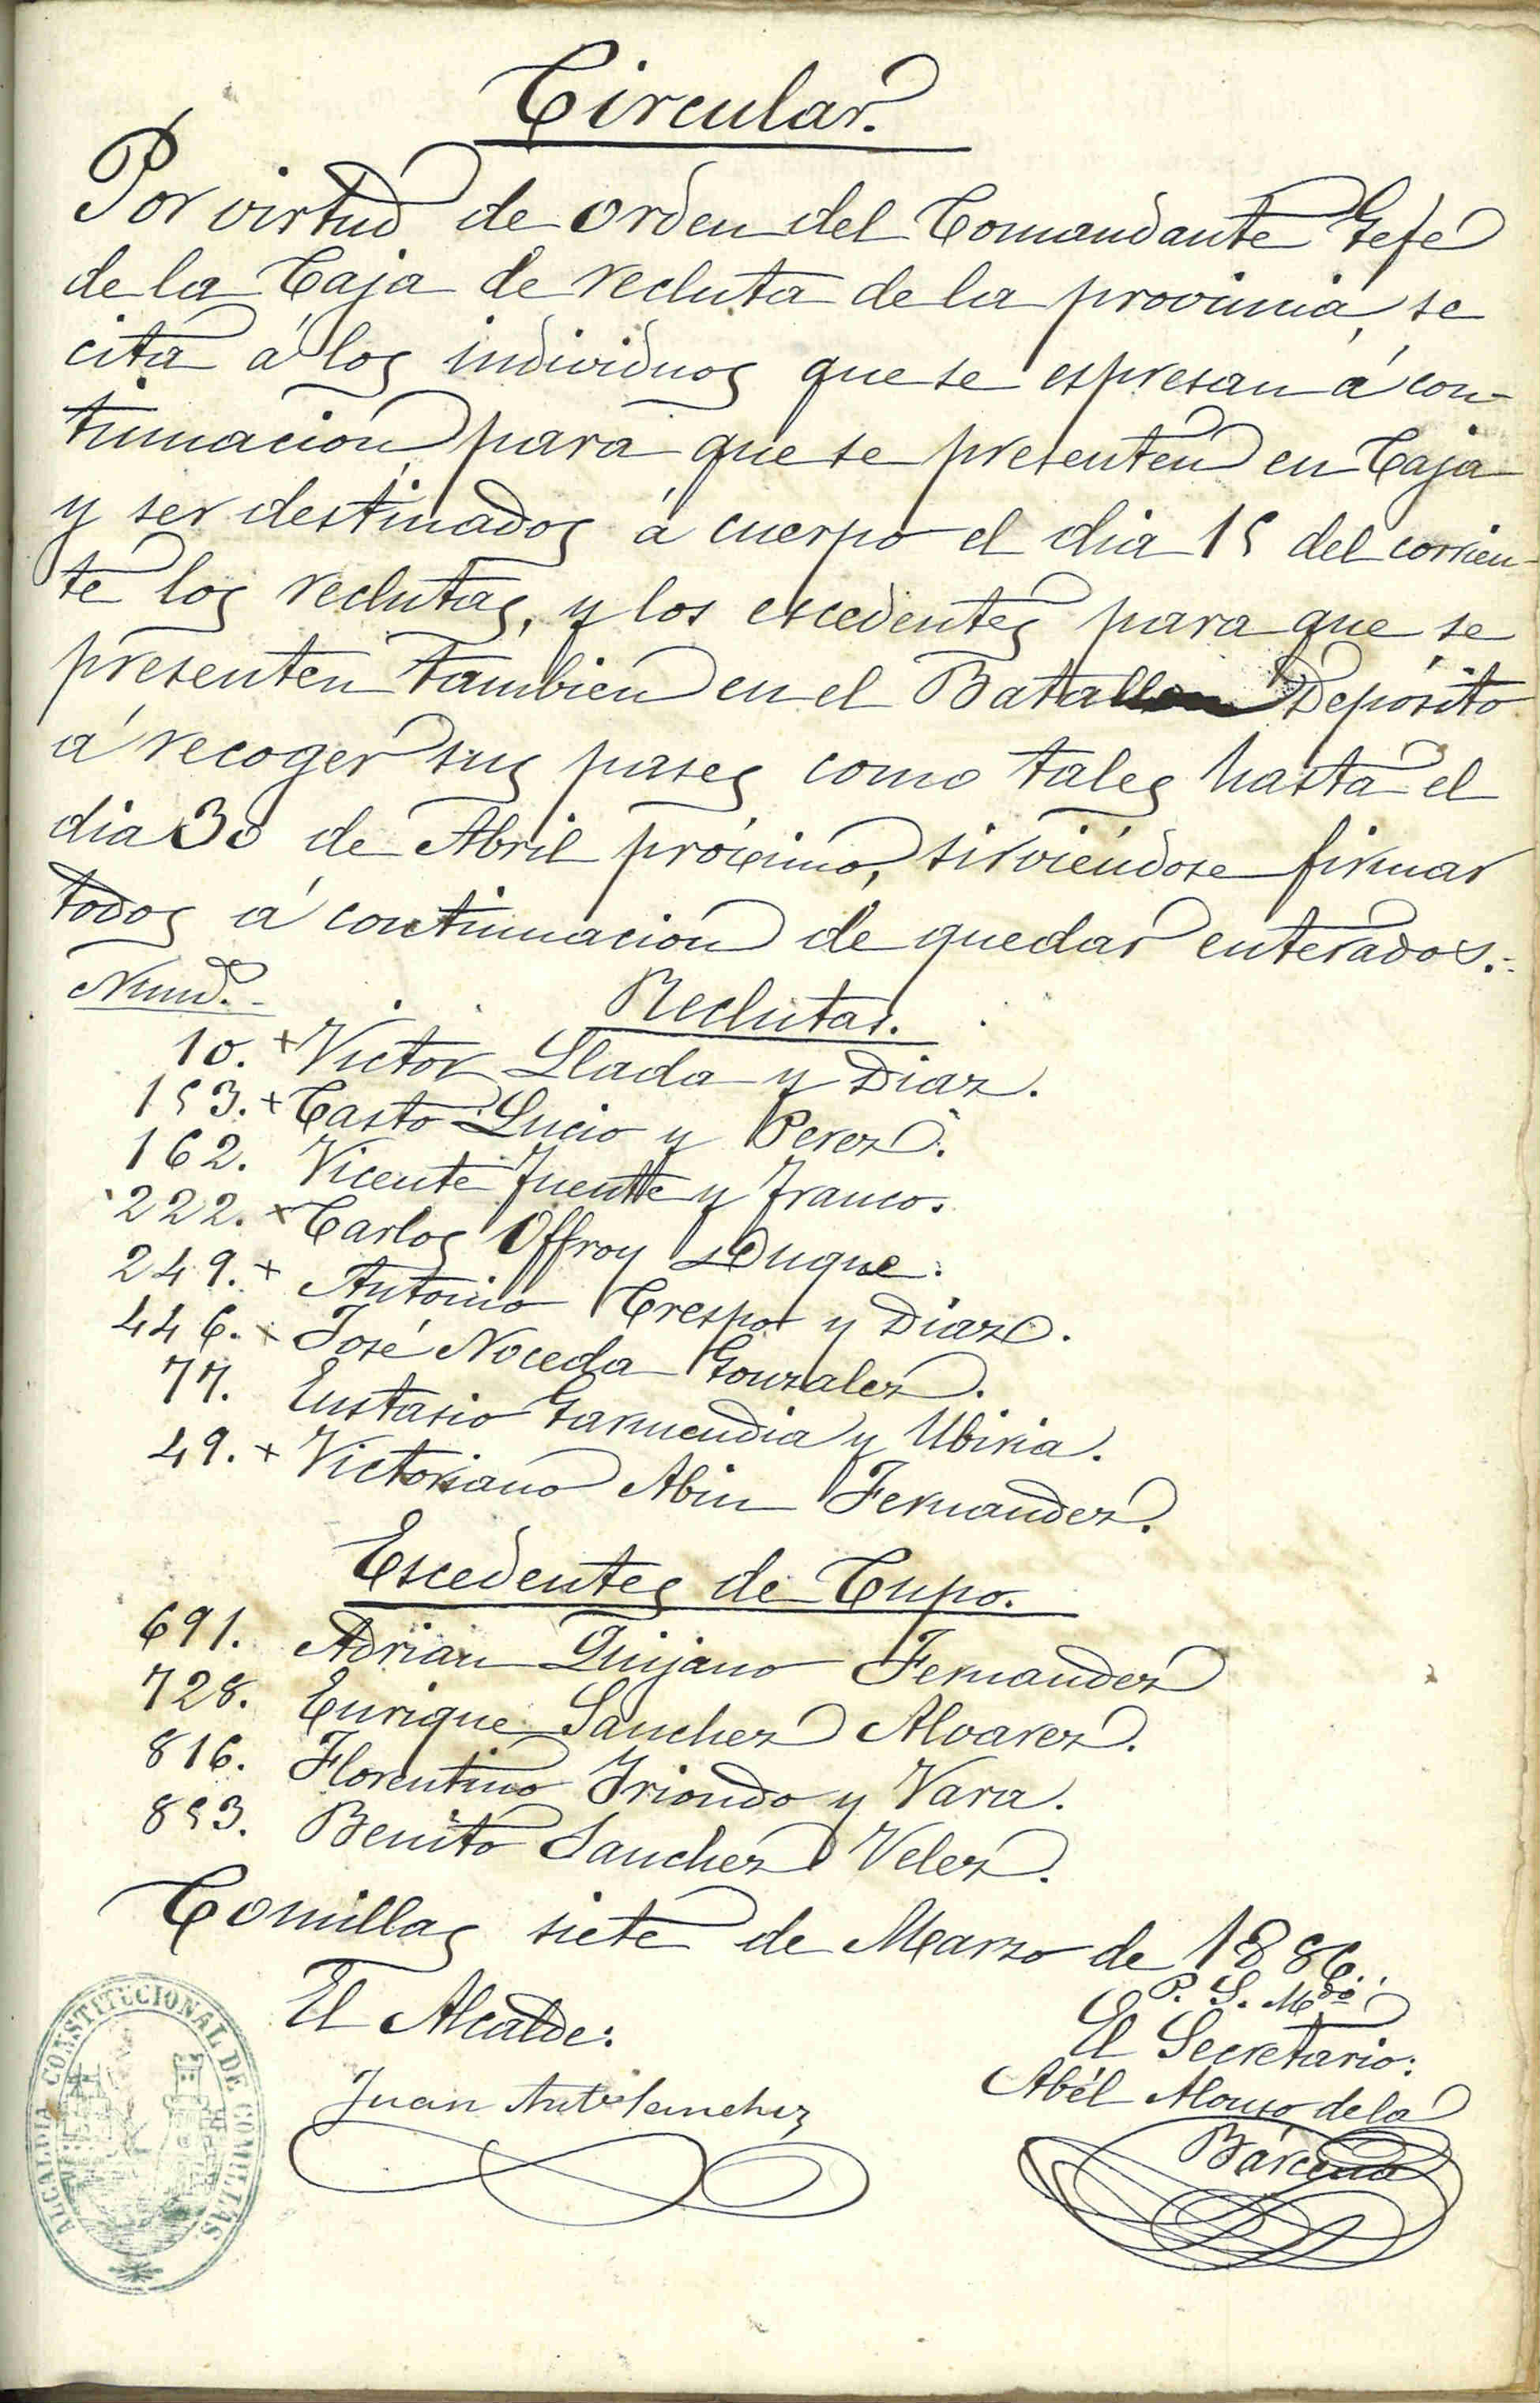 Circular.
Por virtud de orden del Comandante Gefe
de la Caja de recluta de la provincia, se
cita á los individuos que se espresan á con-
tinuacion para que se presenten en Caja
y ser destinados á cuerpo el dia 15 del corrien-
te los reclutas, y los escedentes para que se
presenten tambien en el Batallon Depósito
á recoger sus pases como tales hasta el
dia 30 de Abril próximo, sirviéndose firmar
todos á continuacion de quedar enterados.-
Num.-
Reclutas.
10. + Victor Llada y Diaz.
153. + Casto Lucio y Perez.
162. Vicente Fuente y Franco.
222. + Carlos Offroy Duque.
249. + Antonio Crespo y Diaz.
446. + José Noceda Gonzalez.
77. Eustasio Garmendia y Ubiria.
49. + Victoriano Abin Fernandez.
Escedentes de Cupo.
691. Adrian Quijano Fernandez
728. Enrique Sanchez Alvarez.
816. Florentino Iriondo y Vara.
853. Benito Sanchez Velez.
Comillas siete de Marzo de 1886.
P. S. Mdo
El Alcalde:
El Secretario:
Juan Anto Sanchez
Abél Alonso de la
Bárcena
ALCALDIA CONSTITUCIONAL DE COMILLAS